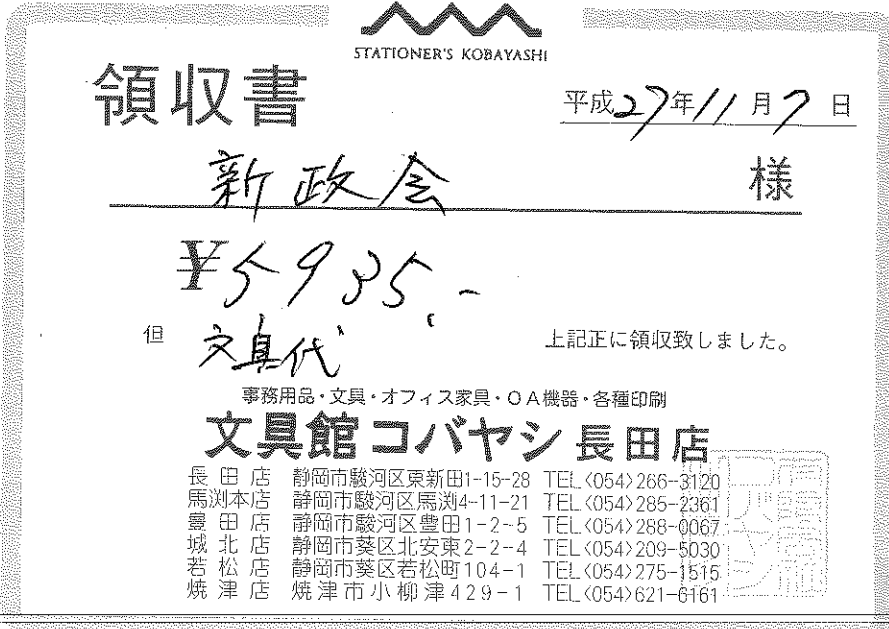 STATIONER'S KOBAYASHI
領収書
平成27年11月7日
新政会 様
¥5935.-
但 文具代 上記正に領収致しました。
事務用品・文具・オフィス家具・OA機器・各種印刷
文具館コバヤシ長田店
長田店 静岡市駿河区東新田1-15-28 TEL<054>266-3120
馬渕本店 静岡市駿河区馬渕4-11-21 TEL<054>285-2361
豊田店 静岡市駿河区豊田1-2-5 TEL<054>288-0067
城北店 静岡市葵区北安東2-2-4 TEL<054>209-5030
若松店 静岡市葵区若松町104-1 TEL<054>275-1515
焼津店 焼津市小柳津429-1 TEL<054>621-6161